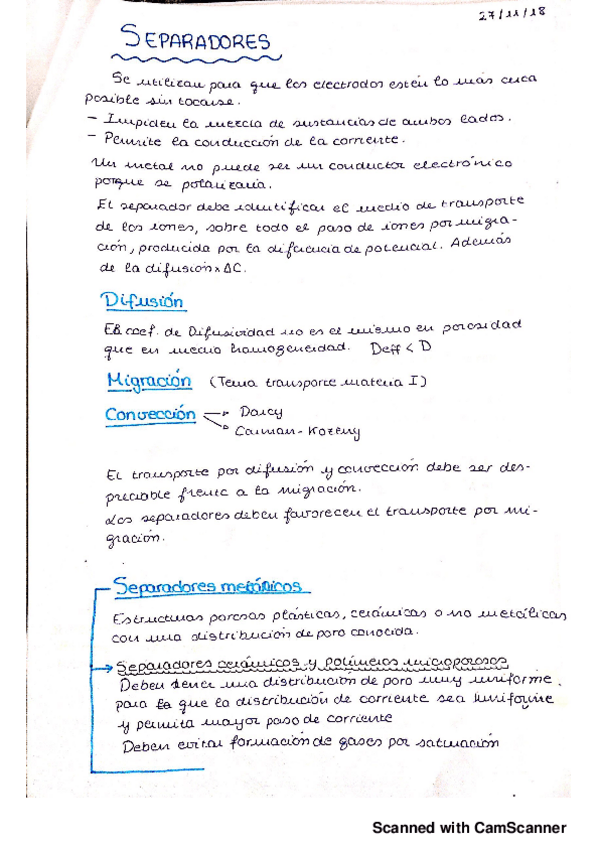 27/11/18
SEPARADORES
Se utilizan para que los electrodos estén lo más cerca
posible sin tocarse.
- Impiden la mezcla de sustancias de ambos lados.
- Permite la conducción de la corriente.
Un metal no puede ser un conductor electrónico
porque se polarizaría.
El separador debe identificar el medio de transporte
de los iones, sobre todo el paso de iones por migra-
ción, producida por la diferencia de potencial. Además
de la difusión x ΔC.
Difusión
El coef. de Difusividad no es el mismo en porosidad
que en medio homogeneidad. Deff < D
Migración (Tema transporte materia I)
Convección → Darcy
→ Carman-Kozeny
El transporte por difusión y convección debe ser des-
preciable frente a la migración.
Los separadores deben favorecer el transporte por mi-
gración.
Separadores mecánicos
Estructuras porosas plásticas, cerámicas o no metálicas
con una distribución de poro conocida.
Separadores cerámicos y polímeros microporosos
Deben tener una distribución de poro muy uniforme
para la que la distribución de corriente sea uniforme
y permita mayor paso de corriente
Deben evitar formación de gases por saturación
Scanned with CamScanner